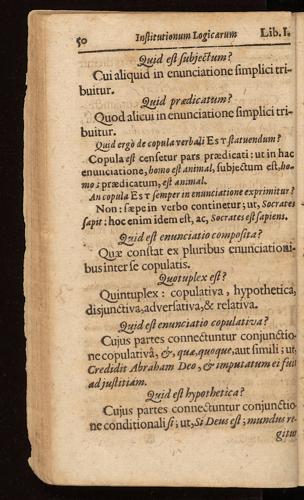 50 Institutionum Logicarum Lib. I.
Quid est subjectum?
Cui aliquid in enunciatione simplici tri-
buitur.
Quid prædicatum?
Quod alicui in enunciatione simplici tri-
buitur.
Quid ergò de copula verbali EST statuendum?
Copula est censetur pars prædicati: ut in hac
enunciatione, homo est animal, subjectum est, ho-
mo; prædicatum, est animal.
An copula EST semper in enunciatione exprimitur?
Non: sæpe in verbo continetur; ut, Socrates
sapit: hoc enim idem est, ac, Socrates est sapiens.
Quid est enunciatio composita?
Quæ constat ex pluribus enunciationi-
bus inter se copulatis.
Quotuplex est?
Quintuplex: copulativa, hypothetica,
disjunctiva, adversativa, & relativa.
Quid est enunciatio copulativa?
Cujus partes connectuntur conjunctio-
ne copulativâ, &, quæ, quoque, aut simili; ut,
Credidit Abraham Deo, & imputatum ei fuit
ad justitiam.
Quid est hypothetica?
Cujus partes connectuntur conjunctio-
ne conditionali si; ut, Si Deus est; mundus re-
gitur